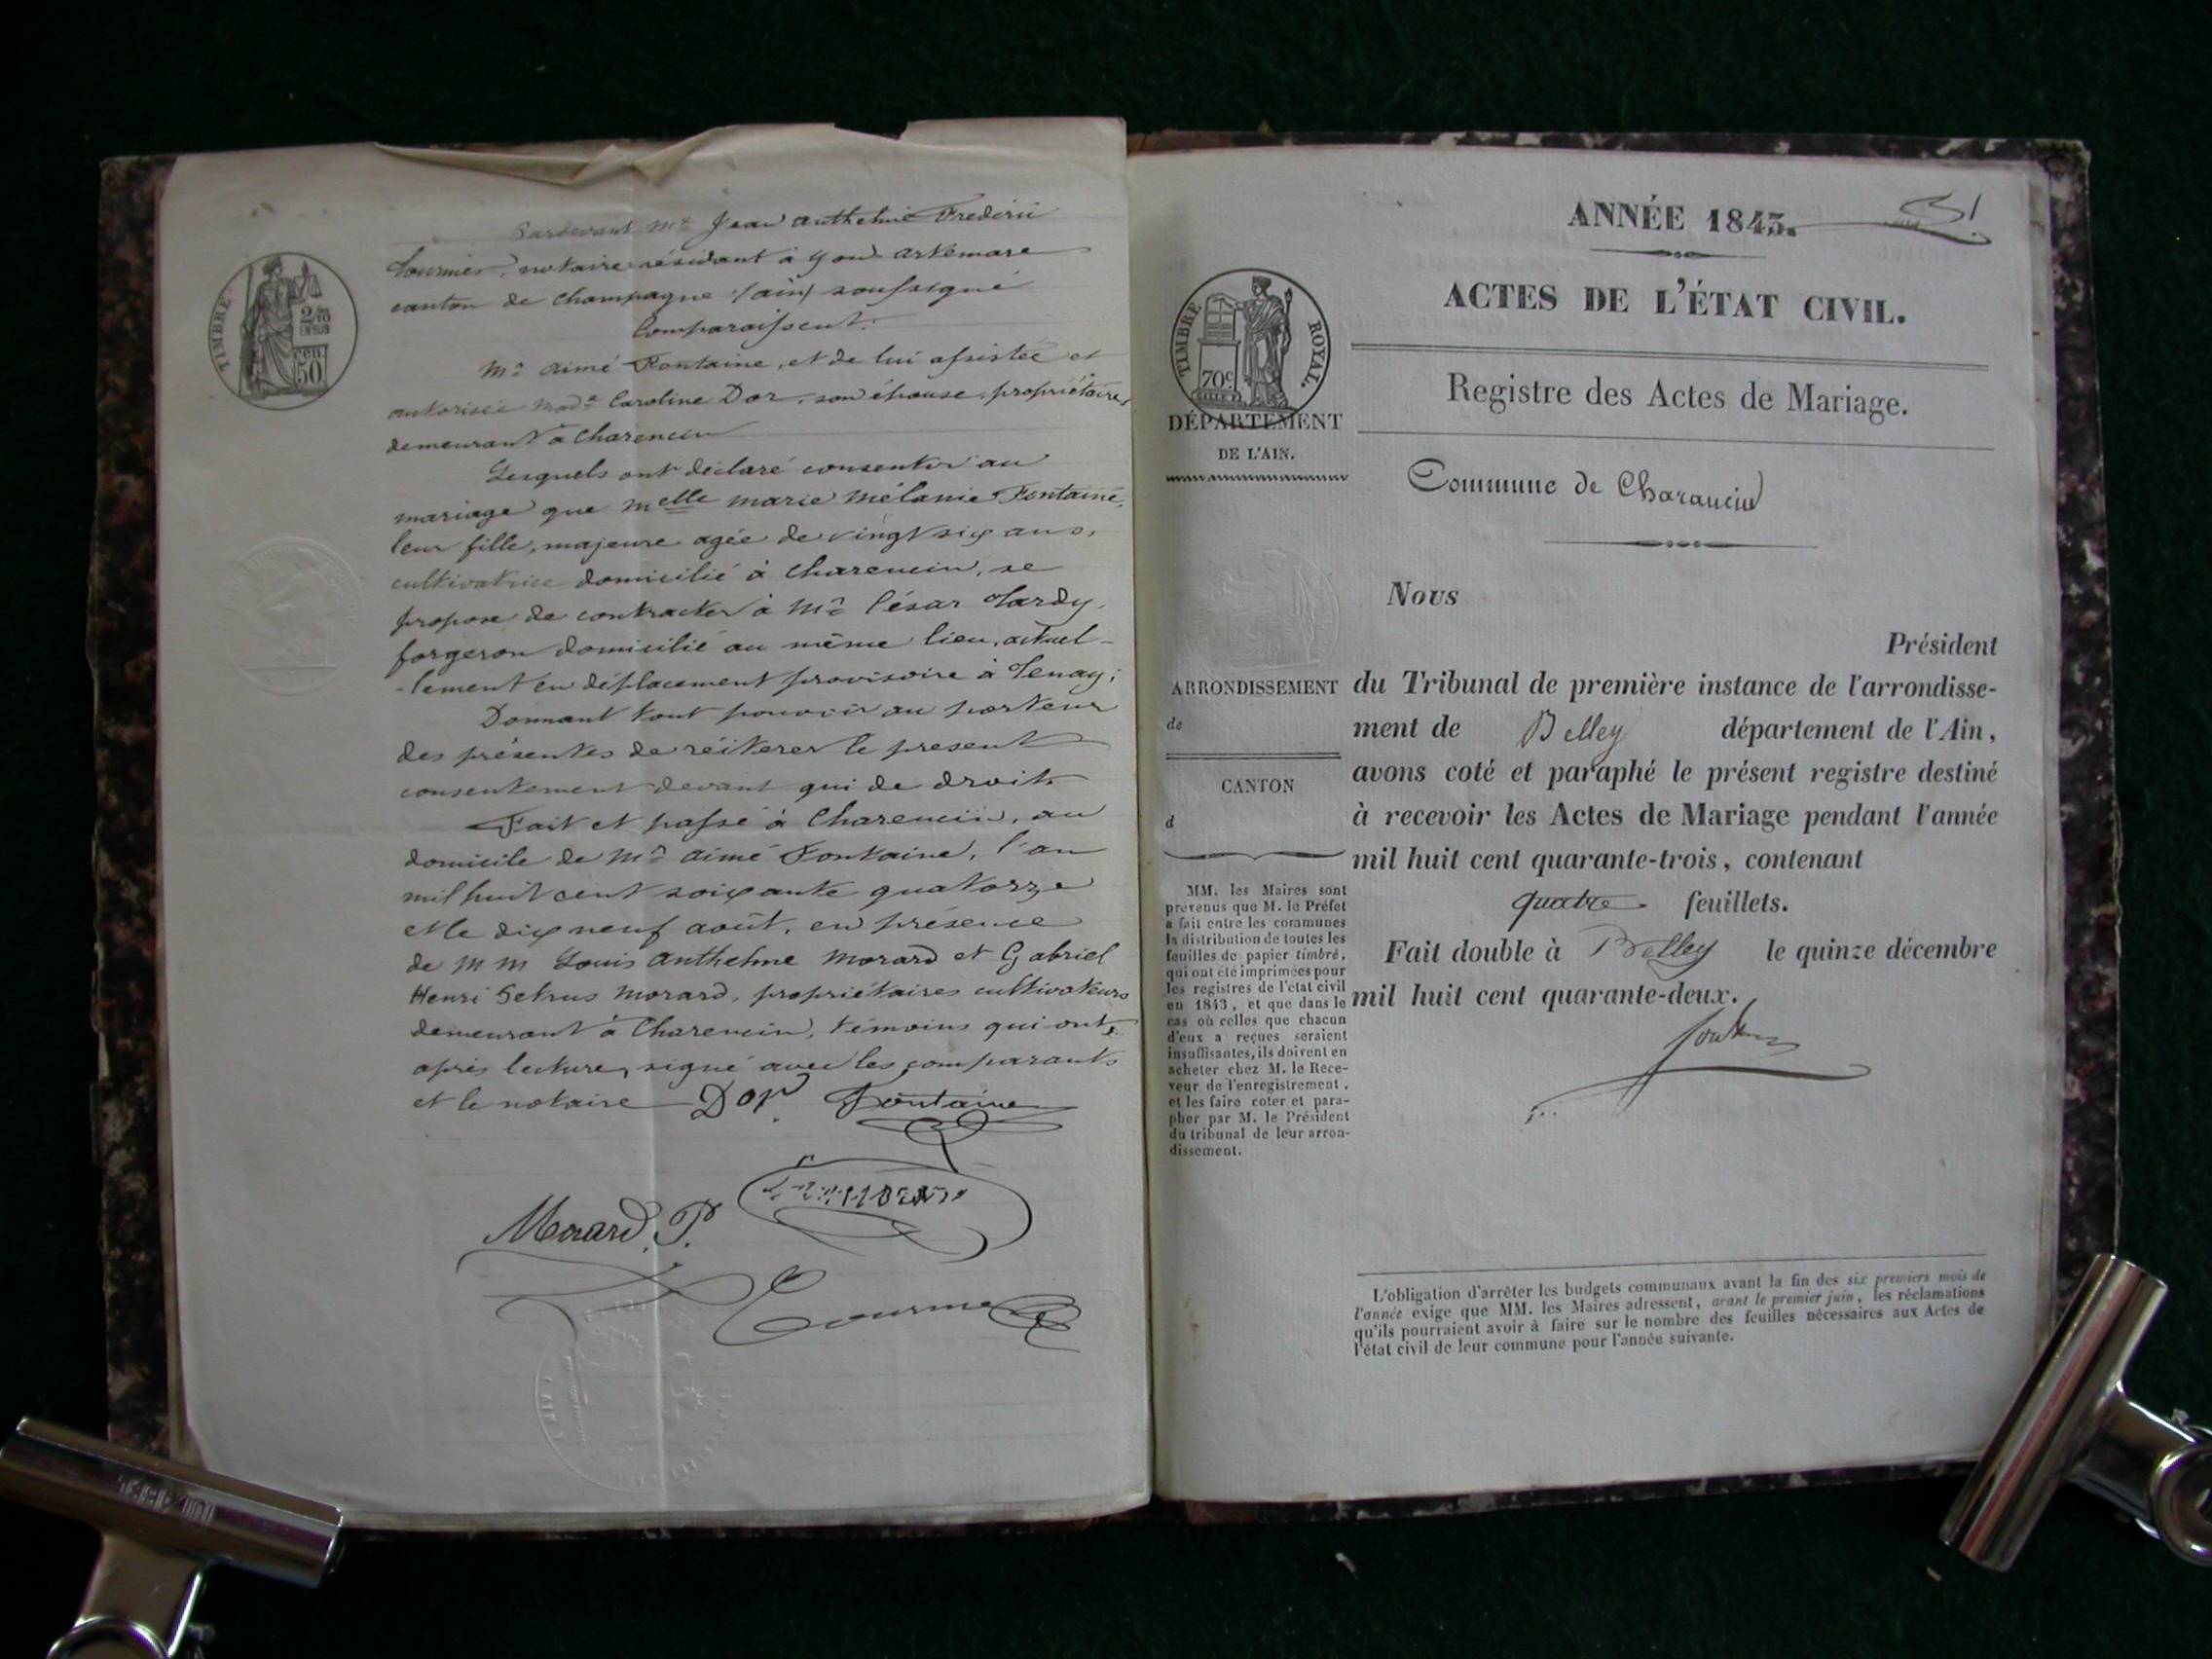 TIMBRE
2/10
EN SUS
50 cen
Pardevant Me Jean Anthelme Frédéric
Tournier, notaire résidant à Yon Artemare
canton de Champagne (ain) soussigné
Comparaissent:
Mr Aimé Fontaine, et de lui assistée et
autorisée Made Caroline Dor, son épouse, propriétaires
demeurant à Charencin
Lesquels ont déclaré consentir au
mariage que Melle Marie Mélanie Fontaine,
leur fille, majeure agée de vingt six ans,
cultivatrice domicilié à Charencin, se
propose de contracter à Mr César Tardy,
forgeron domicilié au même lieu, actuel-
-lement en déplacement provisoire à Tenay;
Donnant tout pouvoir au porteur
des présentes de réiterer le present
consentement devant qui de droit.
Fait et passé à Charencin, au
domicile de Mr Aimé Fontaine, l'an
mil huit cent soixante quatorze
et le dix neuf août, en présence
de MM Louis Anthelme Morard et Gabriel
Henri Morard, propriétaires cultivateurs
demeurant à Charencin, témoins qui ont,
après lecture, signé avec les comparants
et le notaire Dor Fontaine
Morard. P.
ANNÉE 1843.
ACTES DE L'ÉTAT CIVIL.
Registre des Actes de Mariage.
TIMBRE ROYAL.
70c
DÉPARTEMENT
DE L'AIN.
Commune de Charancin
Nous
Président
ARRONDISSEMENT
de
CANTON
d
du Tribunal de première instance de l'arrondisse-
ment de Belley département de l'Ain,
avons coté et paraphé le présent registre destiné
à recevoir les Actes de Mariage pendant l'année
mil huit cent quarante-trois, contenant
quatre feuillets.
Fait double à Belley le quinze décembre
mil huit cent quarante-deux.
MM. les Maires sont
prévenus que M. le Préfet
a fait entre les communes
la distribution de toutes les
feuilles de papier timbré,
qui ont été imprimées pour
les registres de l'état civil
en 1843, et que dans le
cas où celles que chacun
d'eux a reçues seraient
insuffisantes, ils doivent en
acheter chez M. le Rece-
veur de l'enregistrement,
et les faire coter et para-
pher par M. le Président
du tribunal de leur arron-
dissement.
L'obligation d'arrêter les budgets communaux avant la fin des six premiers mois de
l'année exige que MM. les Maires adressent, avant le premier juin, les réclamations
qu'ils pourraient avoir à faire sur le nombre des feuilles nécessaires aux Actes de
l'état civil de leur commune pour l'année suivante.